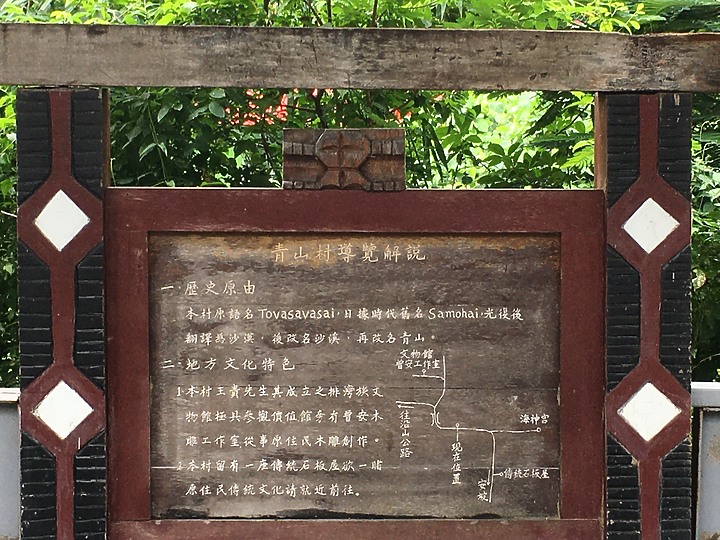 青山村導覽解說
一·歷史原由
本村原語名Tovasavasai,日據時代舊名Samohai,光復後
翻譯為沙漠,後改名沙溪,再改名青山。
二·地方文化特色
1·本村王貴先生其成立之排灣族文
物館極具參觀價值館旁有曾安木
雕工作室,從事原住民木雕創作。
2·本村留有一座傳統石板屋欲一睹
原住民傳統文化請就近前往。
文物館
曾安工作室
往沿山公路
現在位置
海神宮
傳統石板屋
安坡